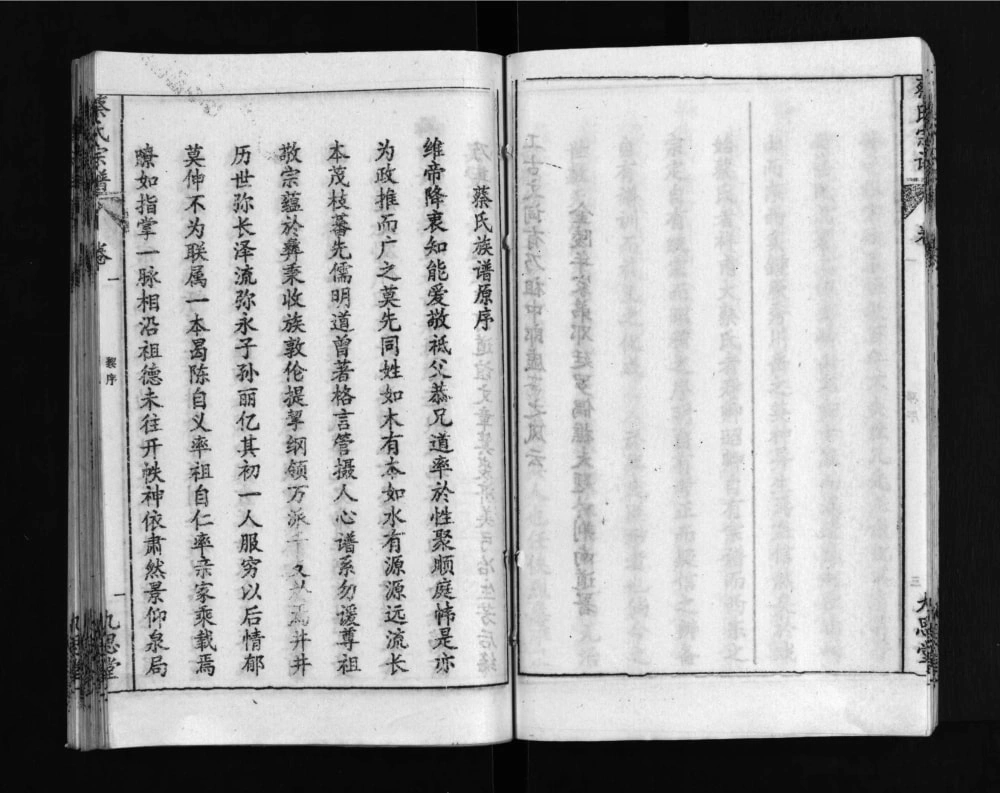 蔡氏宗谱
卷
三
九思堂
蔡氏族谱原序
维帝降衷知能爱敬祗父恭兄道率於性聚顺庭帏是亦
为政推而广之莫先同姓如木有本如水有源源远流长
本茂枝蕃先儒明道曾著格言管摄人心谱系勿谖尊祖
敬宗蕴於彝秉收族敦伦提挈纲领万派千 焉井井
历世弥长泽流弥永子孙丽亿其初一人服穷以后情郁
莫伸不为联属一本曷陈自义率祖自仁率亲家乘载焉
瞭如指掌一脉相沿祖德未往开帙神依肃然景仰泉局
蔡氏宗谱
卷一
序
一
九思堂